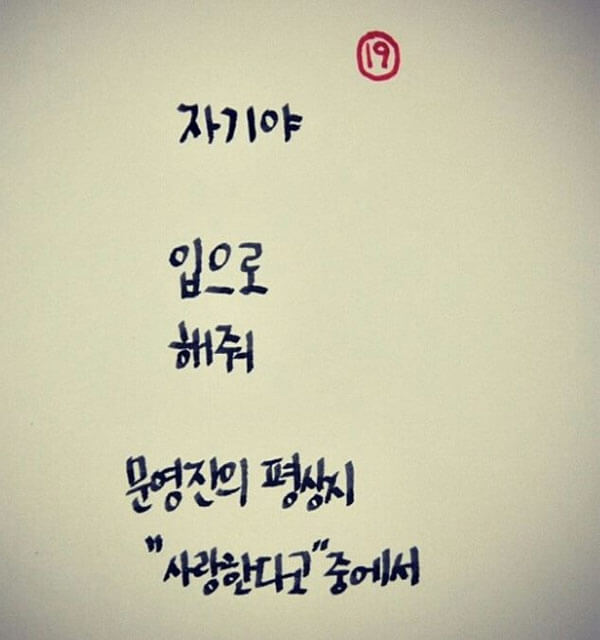 19
자기야
입으로
해줘
문영진의 평상지
"사랑한다고"중에서